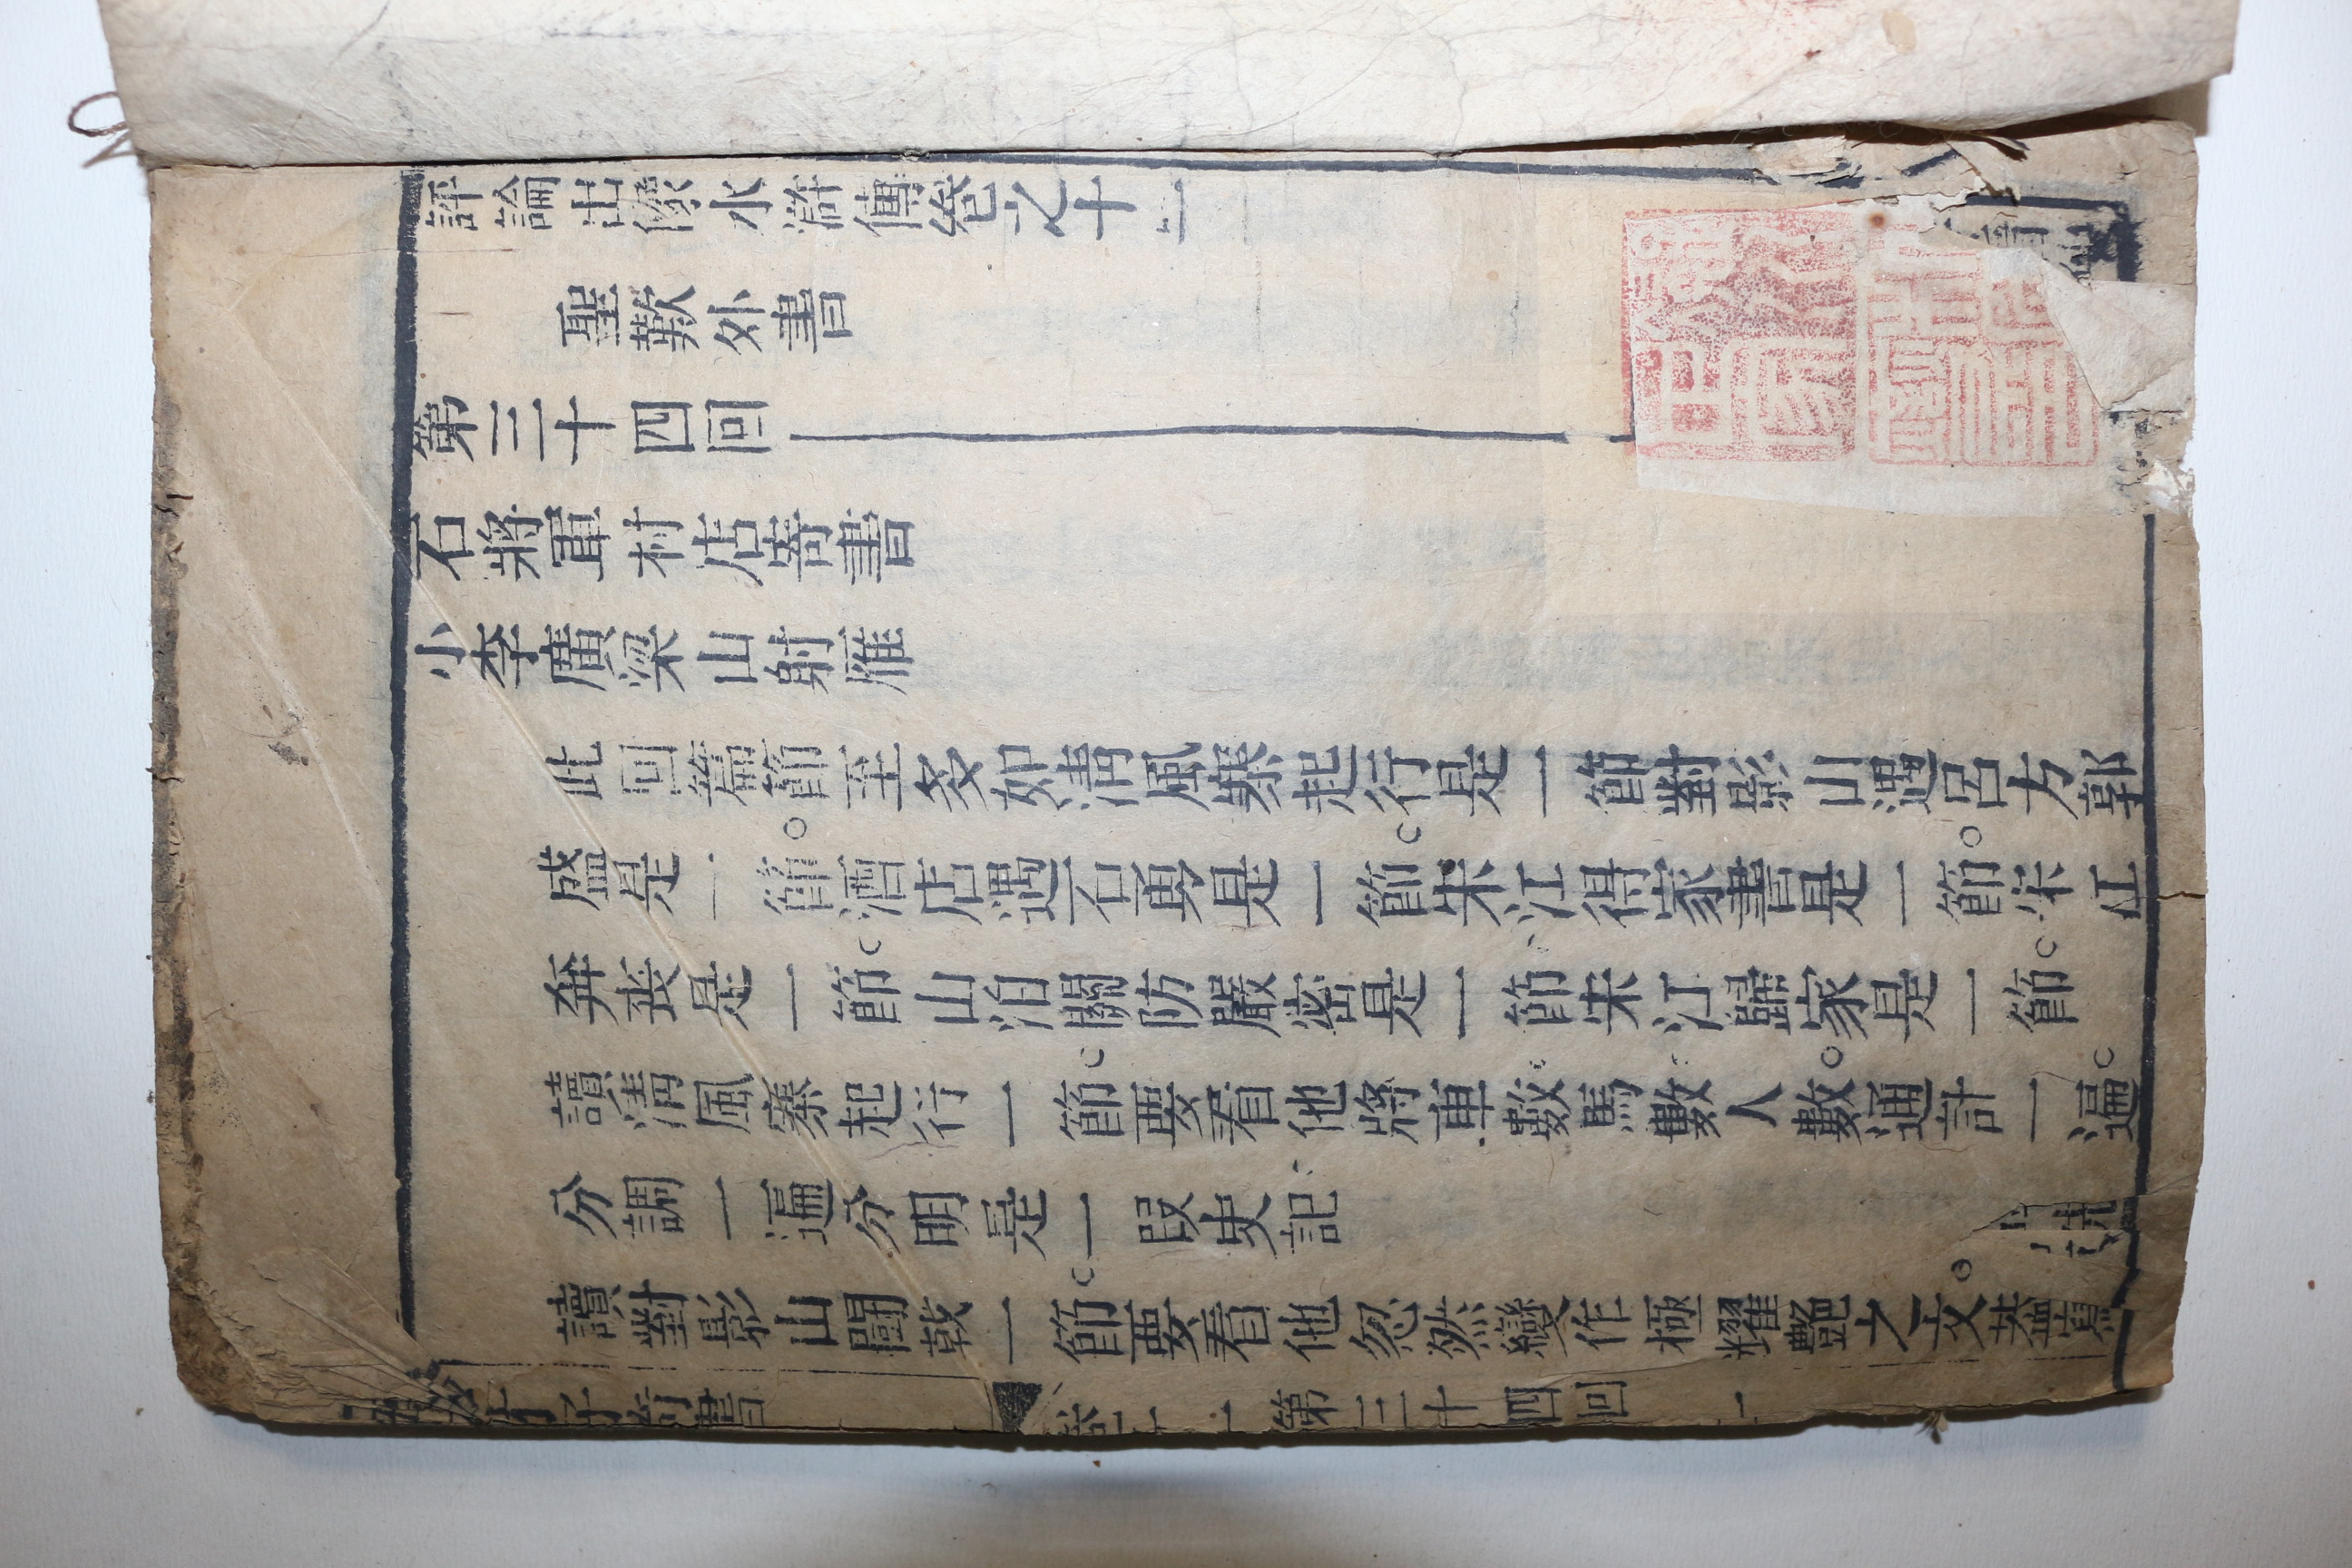 評論出像水滸傳卷之十二
聖歎外書
第三十四回
石將軍村店寄書
小李廣梁山射雁
此回篇節至多如清風寨起行是一節對影山遇呂方郭
盛是一節酒店遇石勇是一節宋江得家書是一節宋江
奔喪是一節山泊關防嚴密是一節宋江歸家是一節
讀清風寨起行一節要看他將車數馬數人數通計一遍
分調一遍分明是一段史記
讀對影山鬭戟一節要看他忽然變作極耀艶之文葢寫
才子竒書
第三十四回
一